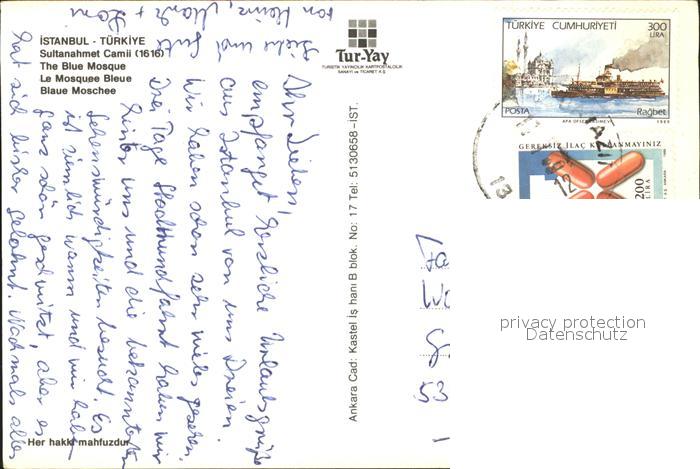 İSTANBUL - TÜRKİYE
Sultanahmet Camii (1616)
The Blue Mosque
Le Mosquee Bleue
Blaue Moschee
Tur-Yay
TURİSTİK YAYINCILIK KARTPOSTALCILIK
SANAYİ ve TİCARET A.Ş.
TÜRKİYE CUMHURİYETİ
300
LİRA
POSTA
Rağbet
GEREKSİZ İLAÇ KULLANMAYINIZ
200
LİRA
Ankara Cad: Kastel İş hanı B blok. No: 17 Tel: 5130658-İST.
Ihr Lieben!
empfanget herzliche Urlaubsgrüße
aus Istanbul von uns Dreien.
Wir haben schon sehr vieles gesehen.
Drei Tage Stadtrundfahrt haben wir
hinter uns und die bekanntesten
Sehenswürdigkeiten besucht. Es
ist ziemlich warm und wir haben
ganz schön geschwitzt, aber es
hat sich bisher gelohnt. Nochmals alles
Liebe und Gute
von Heinz,
Her hakkı mahfuzdur
53
privacy protection
Datenschutz